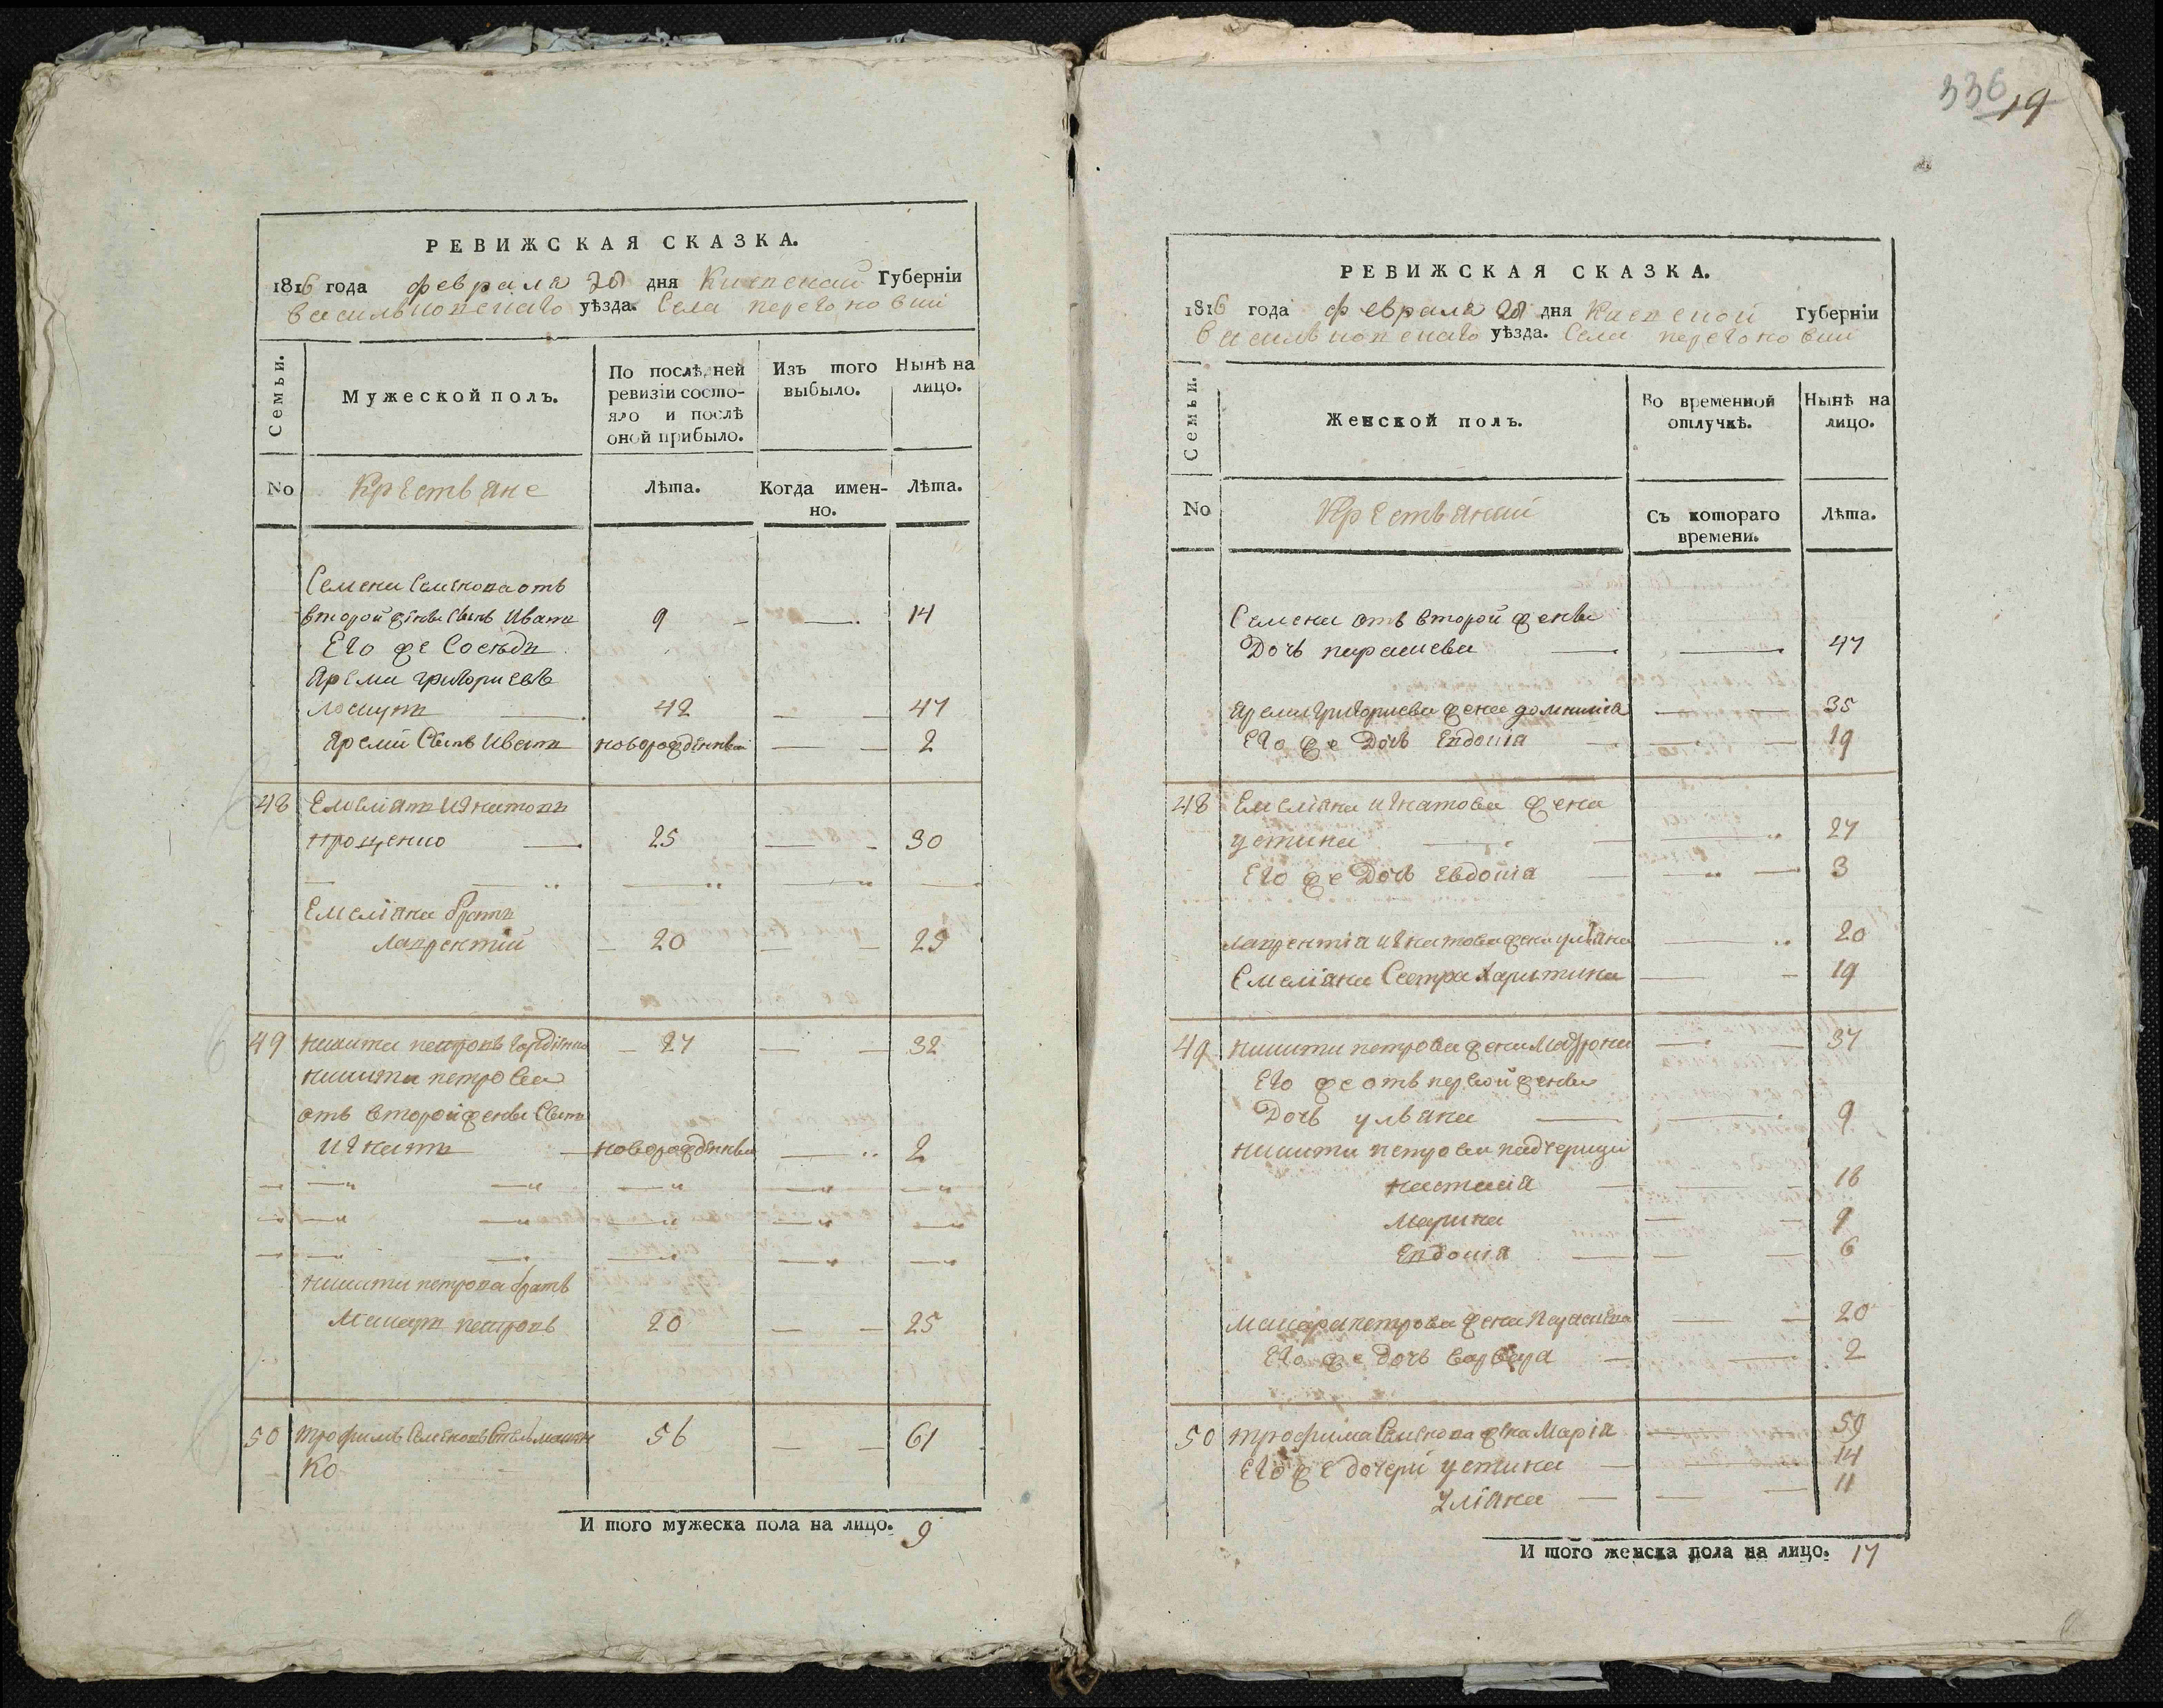 РЕВИЖСКАЯ СКАЗКА.
1816 года февраля 28 дня Киевской Губернiи
васильковскаго уѣзда. Села
Семьи.
Мужеской полъ.
По послѣдней ревизiи состояло и послѣ оной прибыло.
Изъ того выбыло.
Нынѣ на лицо.
No
Крестьяне
Лѣта.
Когда именно.
Лѣта.
Семена Семенова отъ
второй жены Сынъ Иванъ 9 14
Его же Соседъ
Ярема Григориевъ
47
Яреми Сынъ Иванъ новорожденный 2
48 Емелiянъ Игнатовъ
проценко 25 30
Емелiяна братъ
Лаврентий 20 25
49 Никита петровъ 27 32
Никити петрова
отъ второй жены Сынъ
Игнатъ новорожденный 2
Никити петрова братъ
Макаръ петровъ 20 25
50 трофимъ Семеновъ Стельмашен
ко 56 61
И того мужеска пола на лицо. 9
336 19
РЕВИЖСКАЯ СКАЗКА.
1816 года февраля 28 дня Киевской Губернiи
васильковскаго уѣзда. Села
Семьи.
Женской полъ.
Во временной отлучкѣ.
Нынѣ на лицо.
No
Крестьянки
Съ котораго времени.
Лѣта.
Семена отъ второй жены
Дочь параскева 47
Яреми Григориева жена домникiя 35
Его же Дочь Евдокiя 19
48 Емелiяна игнатова жена
устина 27
Его же Дочь Евдокiя 3
лаврентiя игнатова жена улiяна 20
Емелiяна Сестра Харитина 19
49 Никити петрова жена Мотрона 37
Его же отъ первой жены
Дочь ульяна 9
Никити петрова падчерици
настасiя 18
Марина 9
Евдокiя 6
Макара петрова жена Параскева 20
Его же дочь варвара 2
50 трофима Семенова жена Марiя 59
Его же дочери устина 14
улiяна 11
И того женска пола на лицо. 17